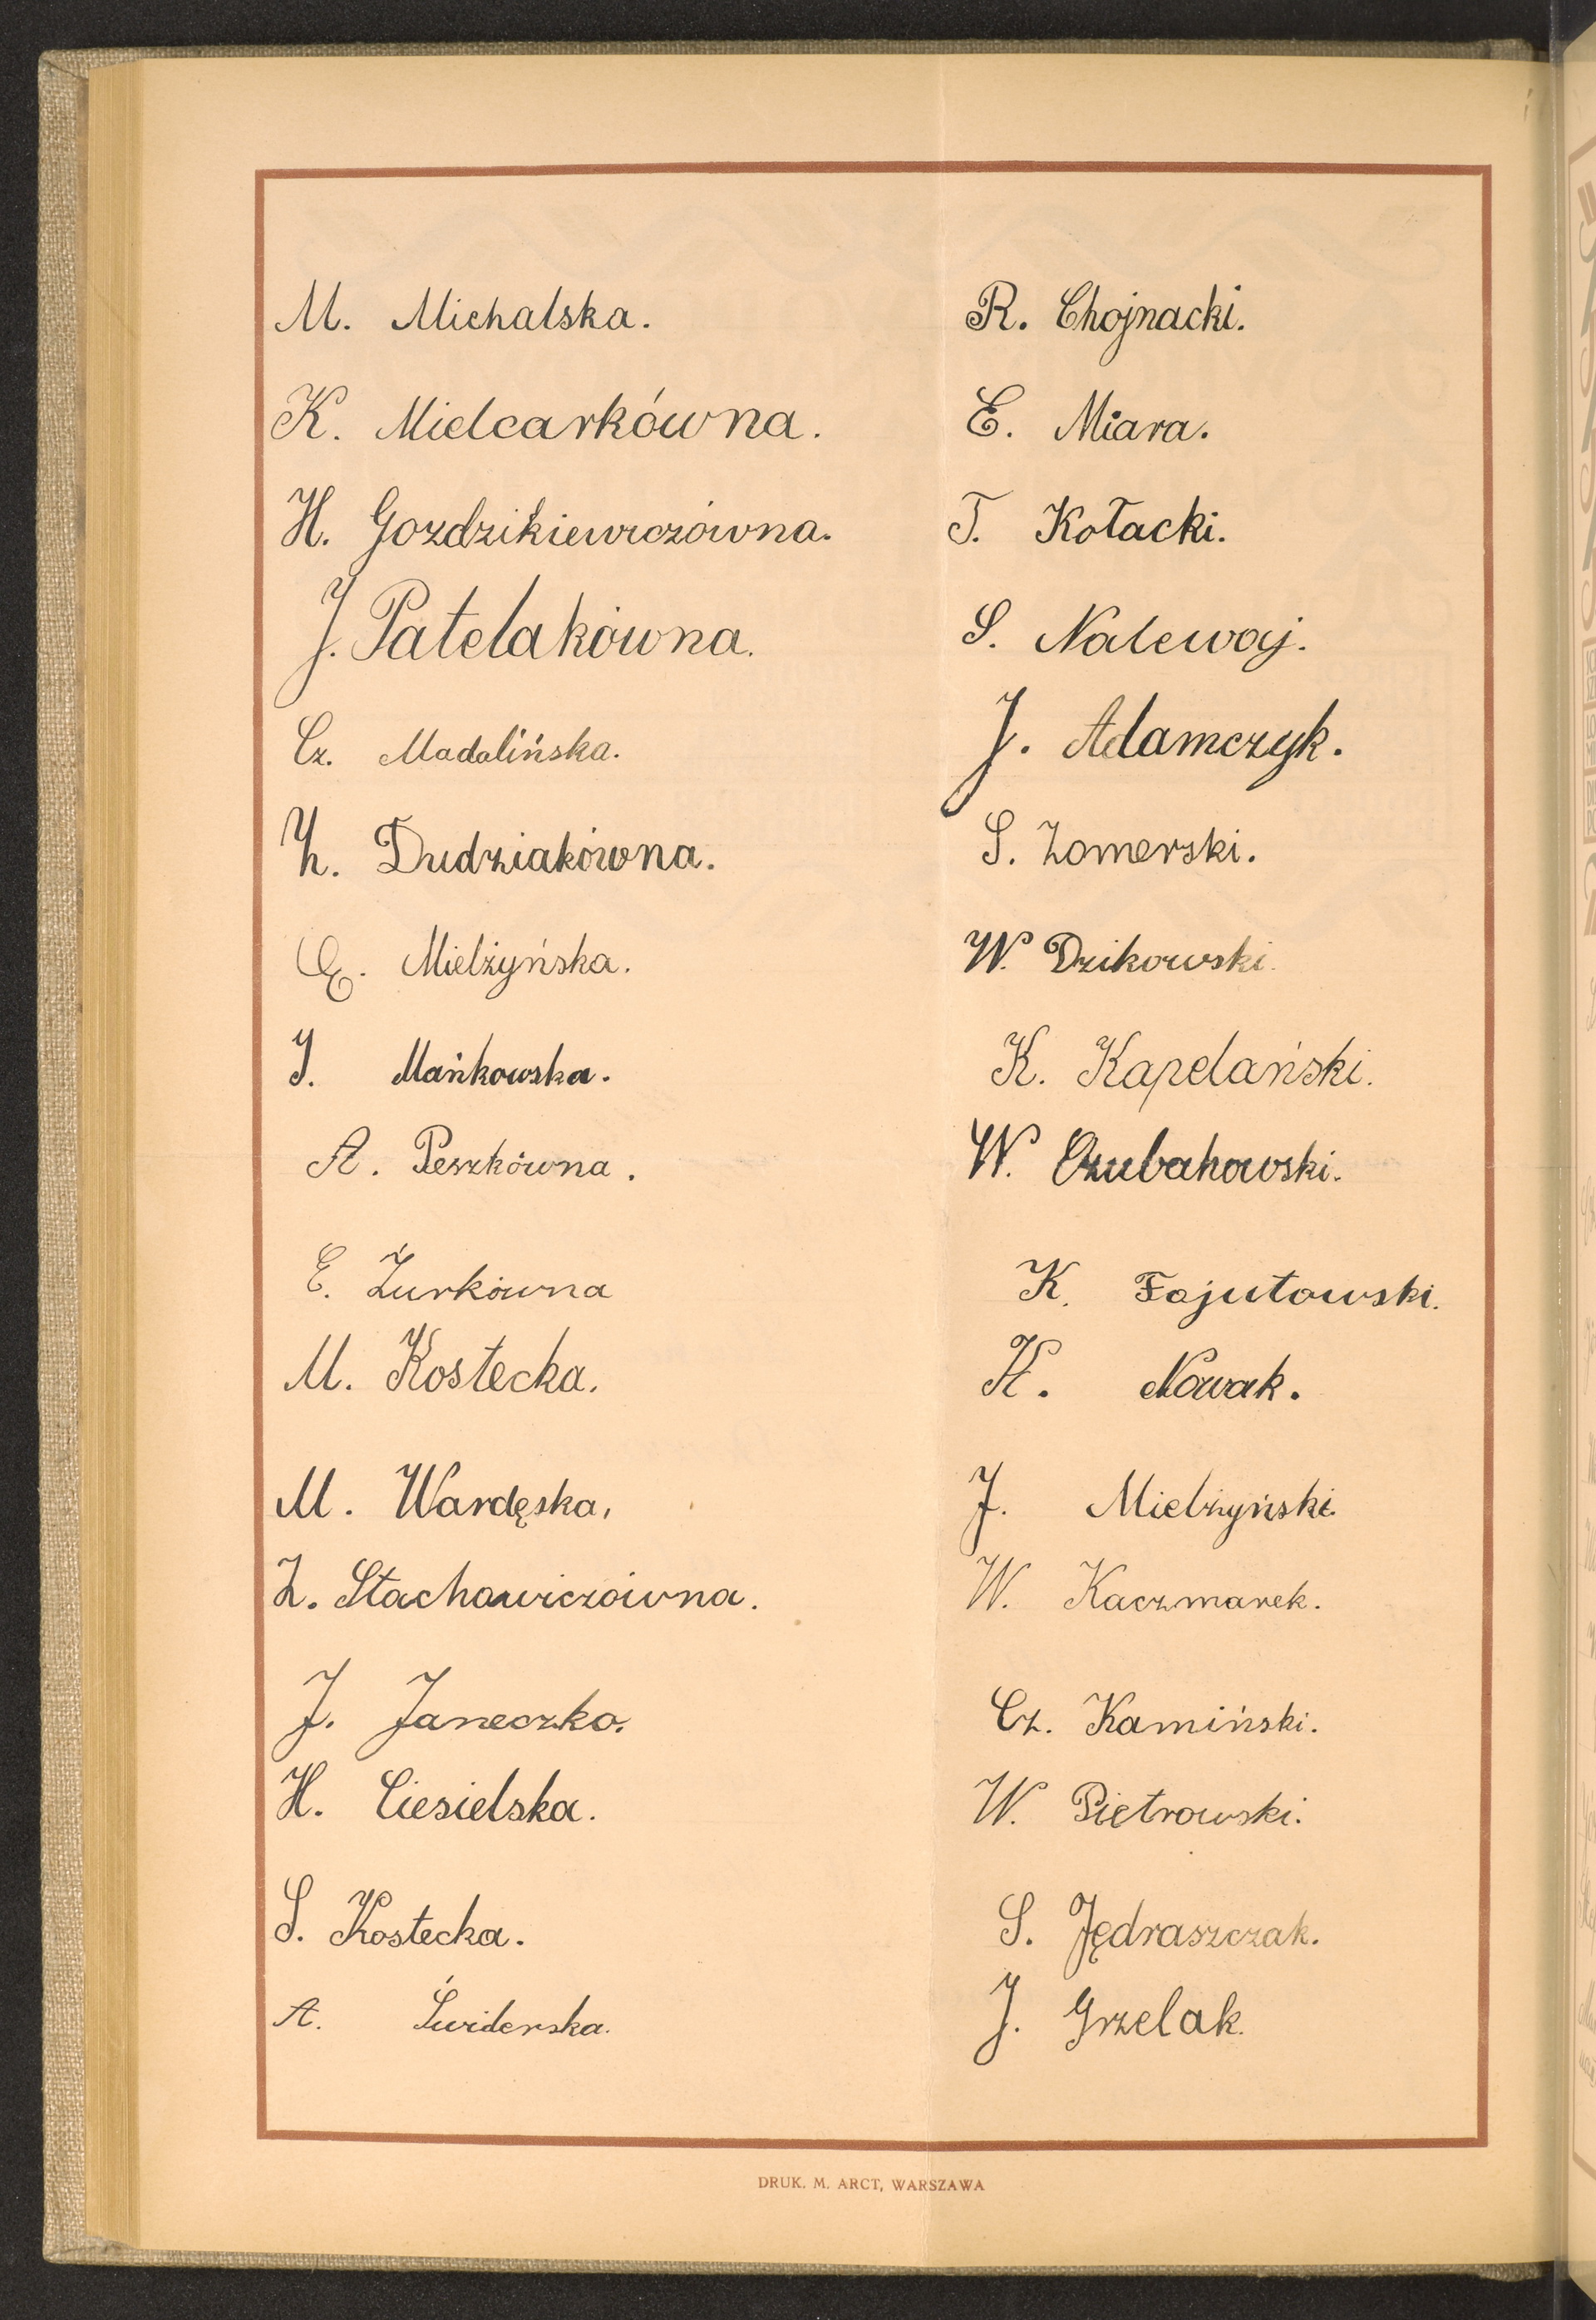 M. Michalska.
K. Mielcarkówna.
H. Gozdzikiewiczówna.
J. Patelakówna.
Cz. Madalińska.
Dudziakówna.
Mielżyńska.
J. Mańkowska.
A. Peszkówna.
E. Żurkówna
M. Kostecka.
M. Wardęska,
Z. Stachowiczówna.
J. Janeczko.
H. Ciesielska.
S. Kostecka.
A. Świderska.
R. Chojnacki.
E. Miara.
T. Kołacki.
S. Nalewaj.
J. Adamczyk.
S. Zomerski.
W. Dzikowski.
K. Kapelański.
W.
K. Fajutowski.
Nowak.
J. Mielżyński.
W. Kaczmarek.
Cz. Kamiński.
W. Pietrowski.
S. Jędraszczak.
J. Grzelak.
DRUK. M. ARCT, WARSZAWA